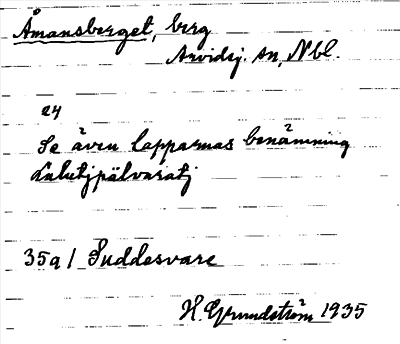 Åmansberget, berg
Arvidsj. sn, Nbl.
24
Se även lapparnas benämning
Lulutjpälvaratj
35a/ Suddesvare
H. Grundström 1935